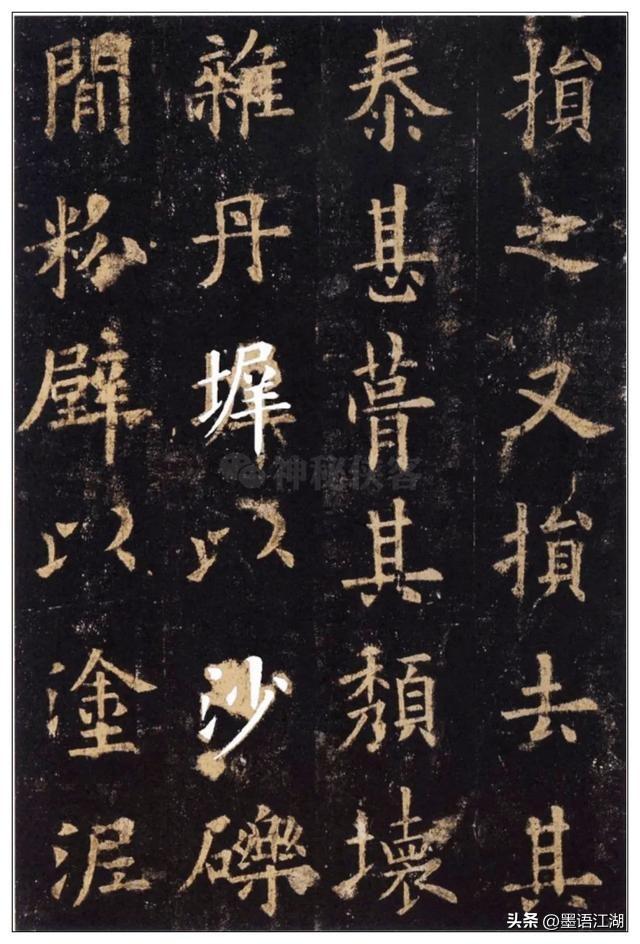 損之又損去其
泰甚葺其頽壞
雜丹墀以沙礫
閒粉壁以塗泥
神秘侠客
头条 @墨语江湖